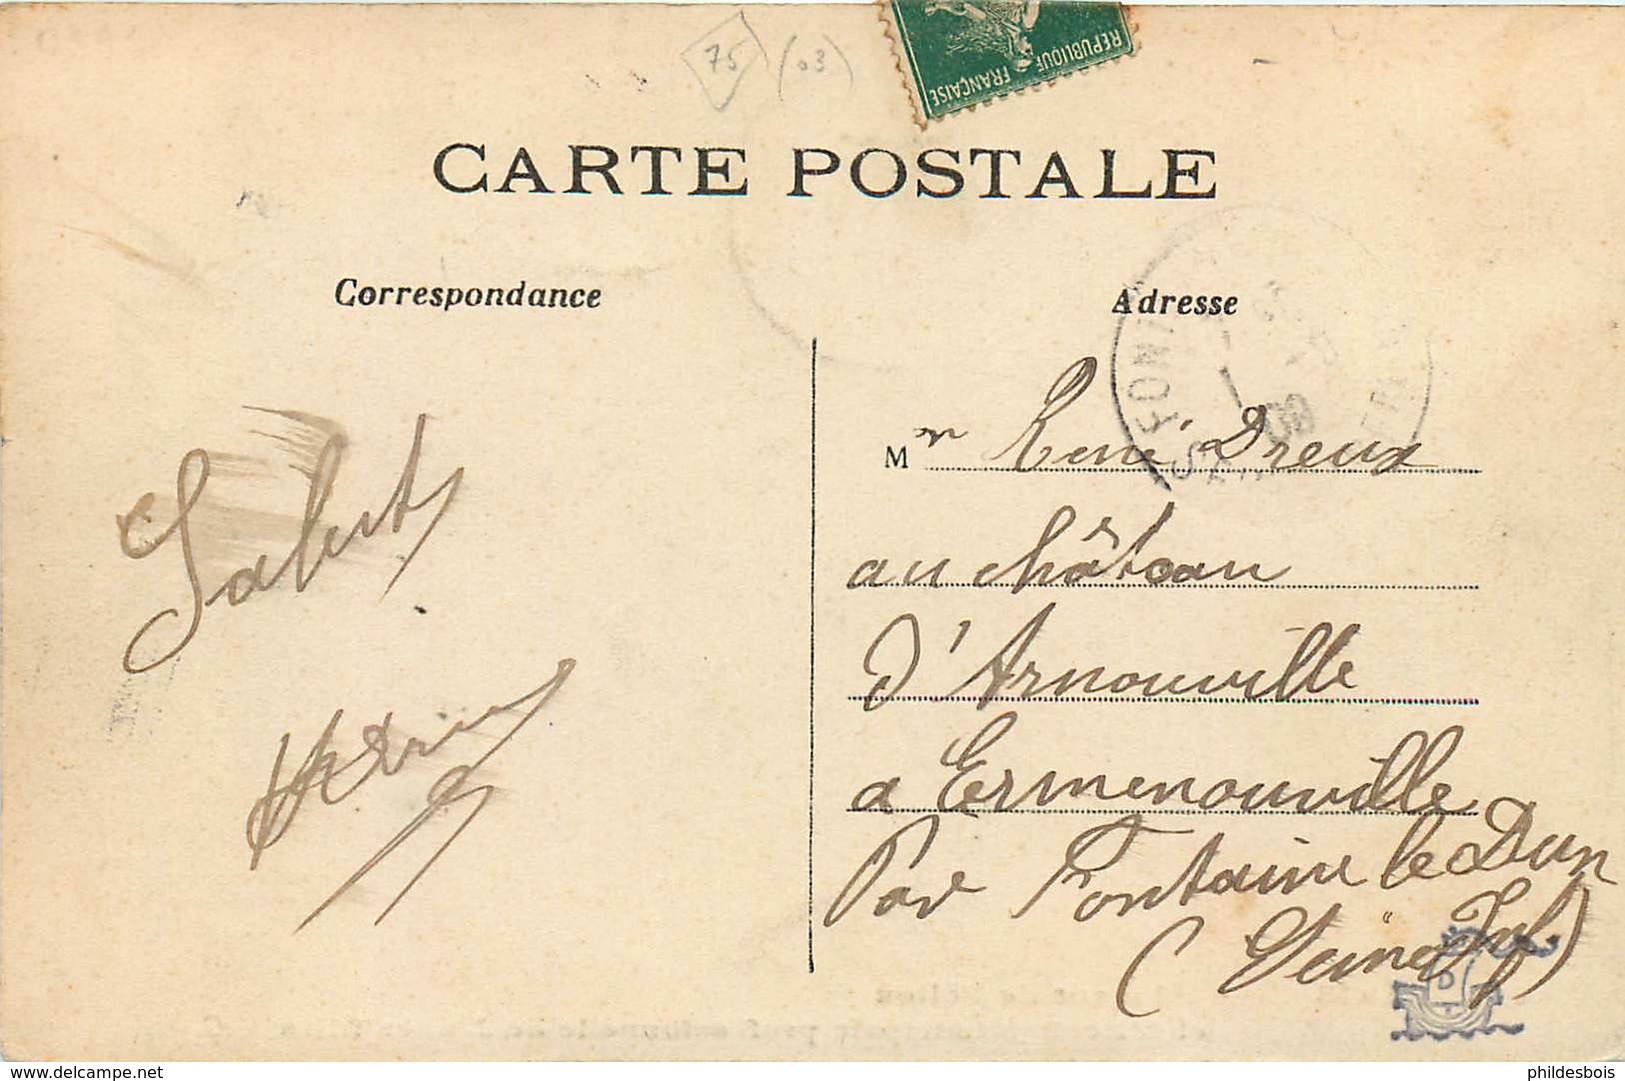 75 (03)
REPUBLIQUE FRANÇAISE
CARTE POSTALE
Correspondance
Adresse
Mr René Dreux
au château
d'Arnouville
a Ermenouville
Par Fontaine le Dun
(Seine Inf)
09
D
delcampe.net
phildesbois